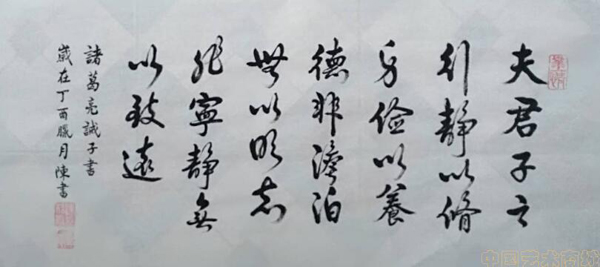 夫君子之
行靜以脩
身儉以養
德非澹泊
無以明志
非寧靜無
以致遠
諸葛亮誡子書
歲在丁酉臘月陳書